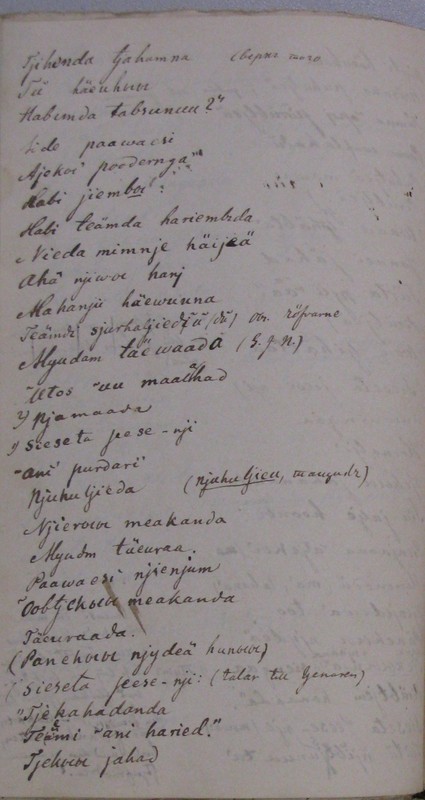 Tjihenda tjahamna (верхъ того
Tu häeuhowe
Habimda tabsunuu?"
sido paawaesi
Ajekoi poodernga"
Habi jiemboi:
Habi teämda hariembida
Nieda mimnje häijeä
Ahā njiwoe harj
Mahanju häewunna
Teämdi sjurhaljiedju (du) om. röfvarne
Myudam täewaada (S. J. N.)
Utos uu maalhad
2) Njamaada
1) Sieseta jeese-nji
ani purdari
Njuhuljieda (njuhuljieu,
Njierowe meakanda
Myudm täeuraa.
Paawaesi njienjum
Oobtjehowe meakanda
Täeuraada.
(Panehowe njydeä hunowe)
(Sieseta jeese-nji: (talar till tjenaren)
"Tjekahadanda
Teämi ani haried."
Tjehowe jahad